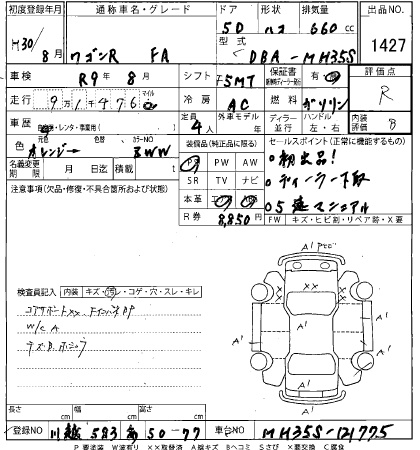 初度登録年月 通称車名・グレード ドア 形状 排気量 出品NO.
H30/8月 ワゴンR FA 5D ハコ 660cc 1427
型式 DBA-MH35S
車検 R9年8月 シフト F5MT 保証書 有 評価点 R
走行 91476 マイル 冷房 AC 燃料 ガソリン
車歴 自家用・レンタ・事業用( ) 定員 4人 外車モデル ディーラー 並行 ハンドル 左・右 内装評価 B
色 元色 オレンジ→ 色替 カラーNO 装備品(純正品に限る) セールスポイント(正常に機能するもの)
名義変更期限 月 日迄 積載 PS PW AW 初出品!
注意事項(欠品・修復・不具合箇所および状態) SR TV ナビ ディーラー下取
本革 5速マニュアル
R券 8,850円 FW キズ・ヒビ割・リペア跡・X要
検査員記入 内装 キズ・汚レ・コゲ・穴・スレ・キレ
コアサポートXX
W/C A
キズ.B.
A1 A1 A1 A1 A1 A1
XX XX
長さ cm 幅 cm 高さ cm
登録NO 583 50-77 車台NO MH35S-121775
P要塗装 W波有り ××取替済 Aキズ Bヘコミ Sさび ×要交換 C腐食